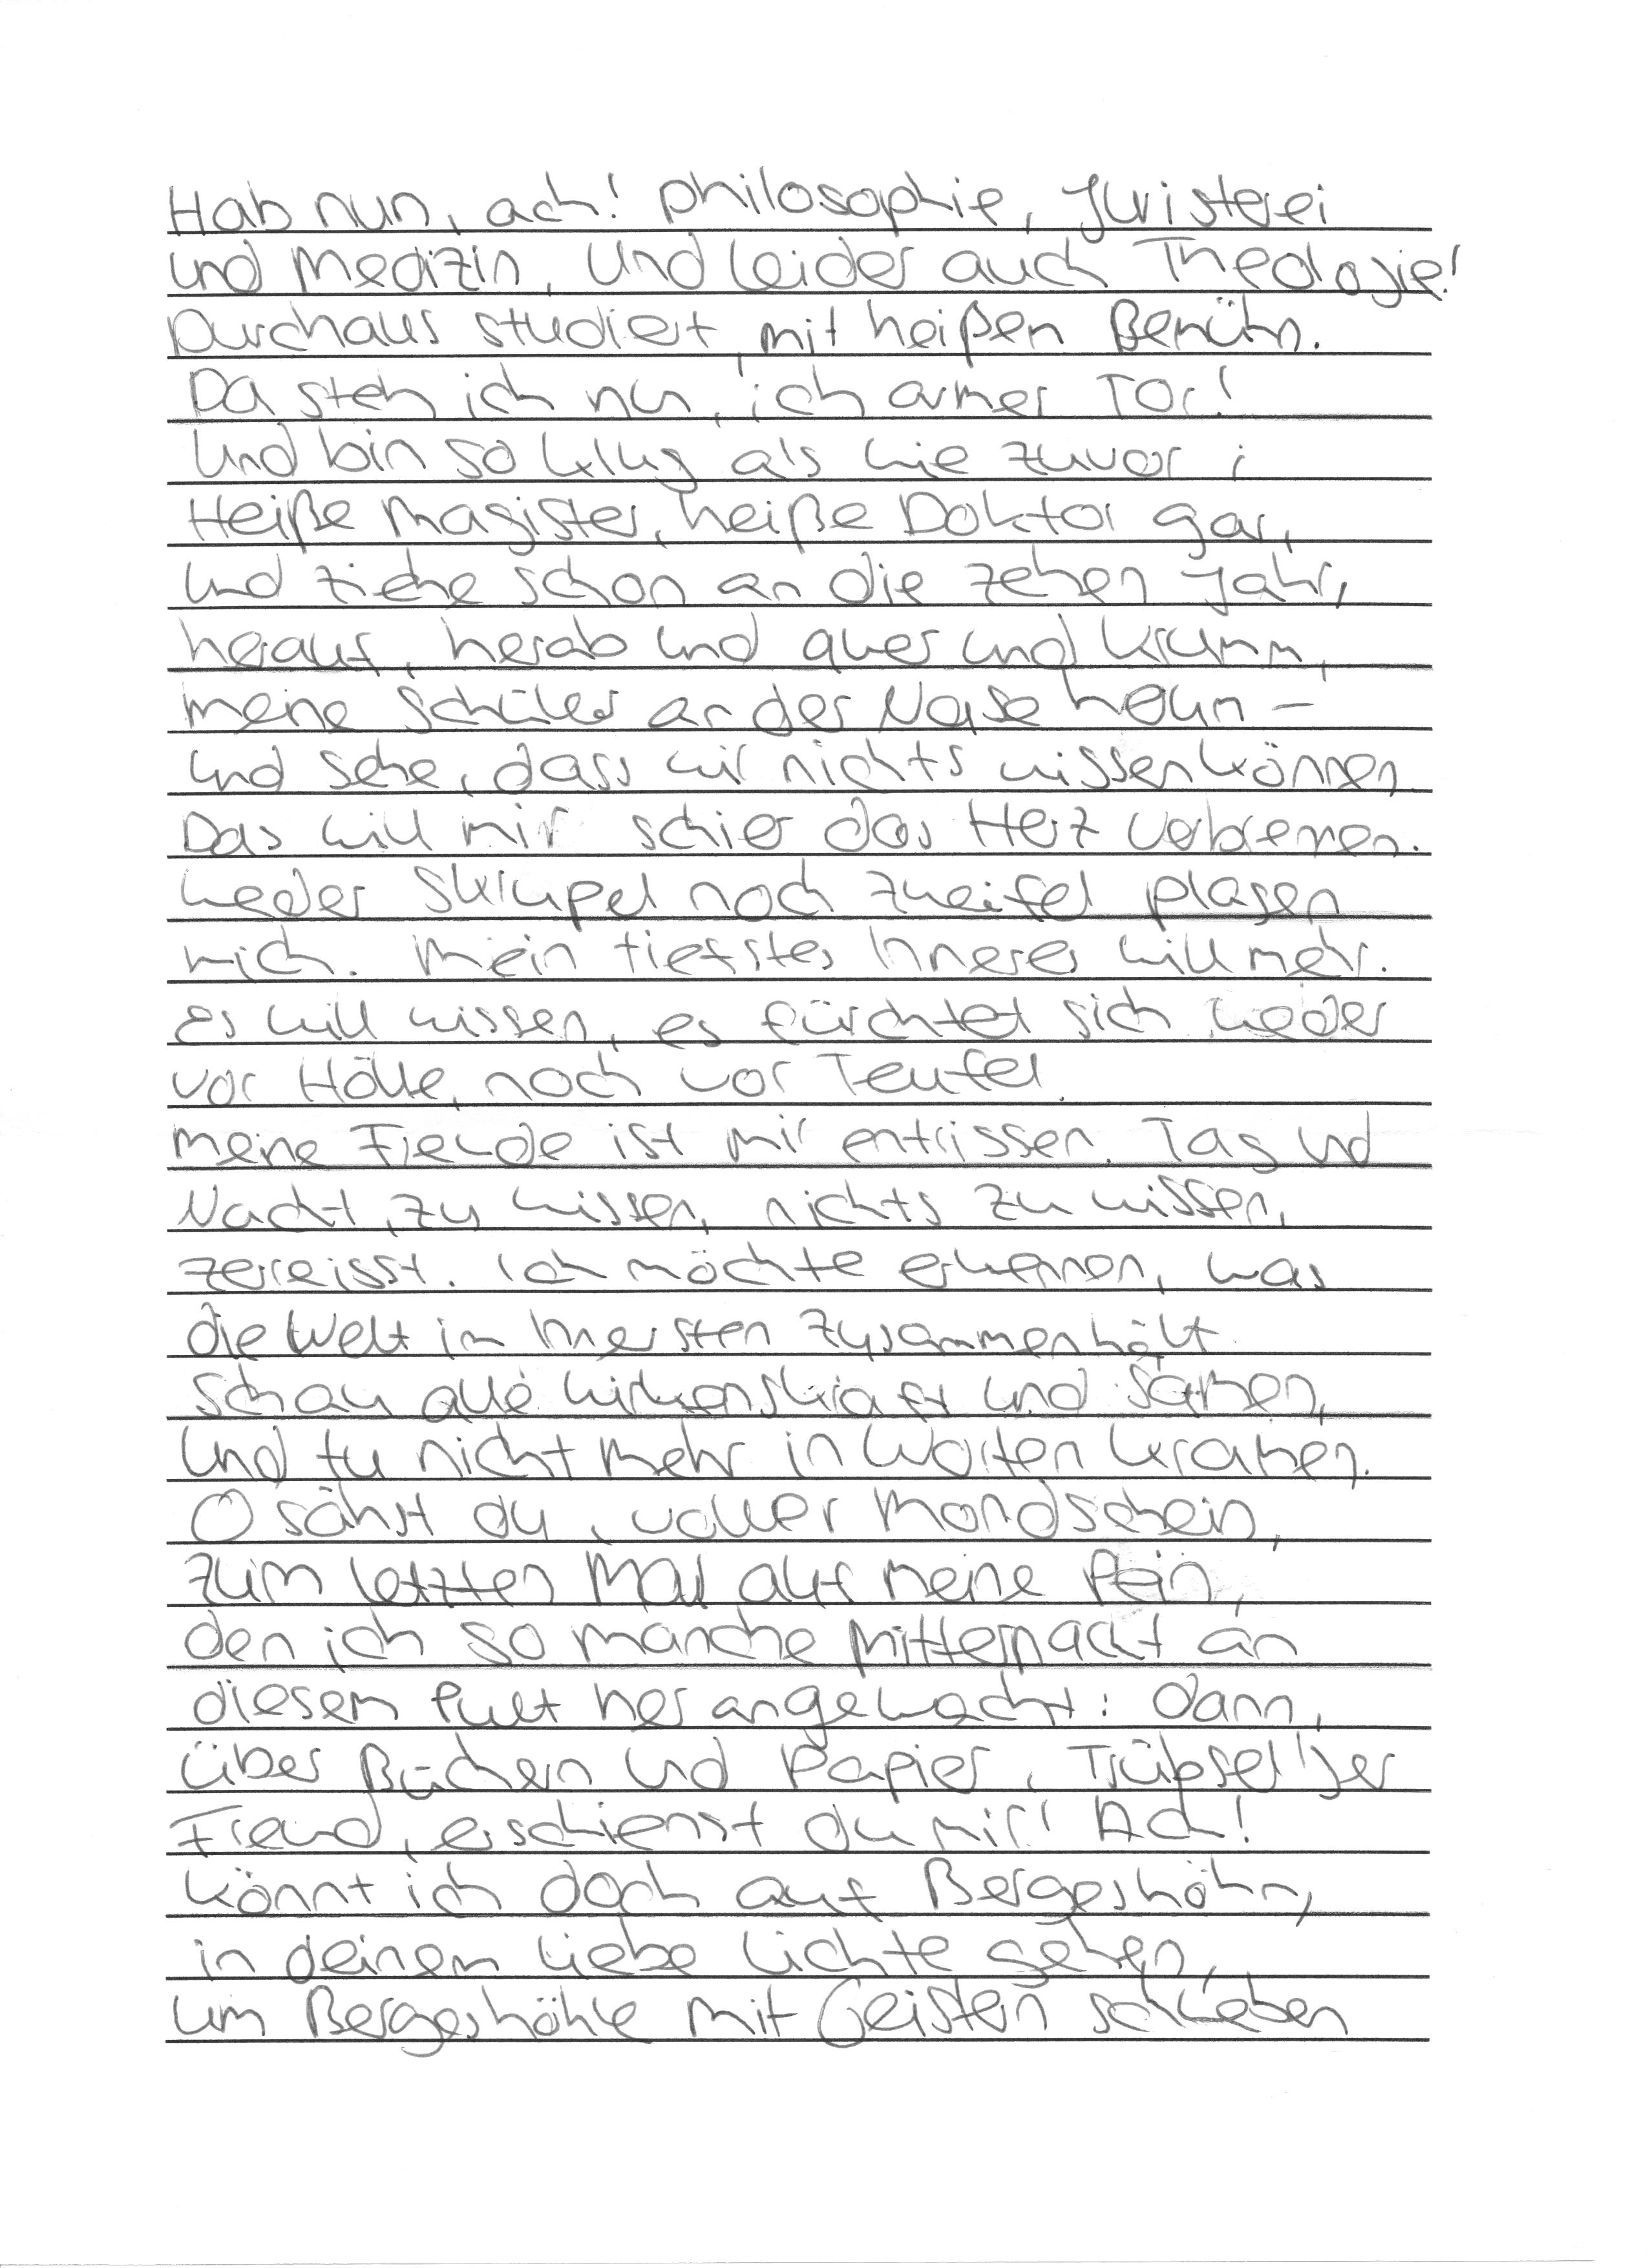 Hab nun, ach! Philosophie, Juristerei
und Medizin, Und leider auch Theologie!
Durchaus studiert, mit heißen Bemühn.
Da steh ich nun, ich armer Tor!
Und bin so klug als wie zuvor;
Heiße Magister, heiße Doktor gar,
und ziehe schon an die zehen Jahr,
herauf, herab und quer und krumm,
meine Schüler an der Nase herum –
und sehe, dass wir nichts wissen können
Das will mir schier das Herz verbrennen.
Weder Skrupel noch Zweifel plagen
mich. Mein tiefstes Inneres will mehr.
Es will wissen, es fürchtet sich weder
vor Hölle, noch vor Teufel.
Meine Freude ist mir entrissen. Tag und
Nacht, zu wissen, nichts zu wissen,
zerreisst. Ich möchte erkennen, was
die Welt im Innersten zusammenhält.
Schau alle Wirkenskraft und Samen,
Und tu nicht mehr in Worten kramen.
O sähst du, voller Mondschein,
Zum letzten Mal auf meine Pein,
den ich so manche Mitternacht an
diesem Pult herangewacht: dann,
über Büchern und Papier, Trübsel'ger
Freund, erschienst du mir! Ach!
Könnt ich doch auf Bergeshöhn,
in deinem liebe Lichte gehen,
um Bergeshöhle mit Geistern schweben